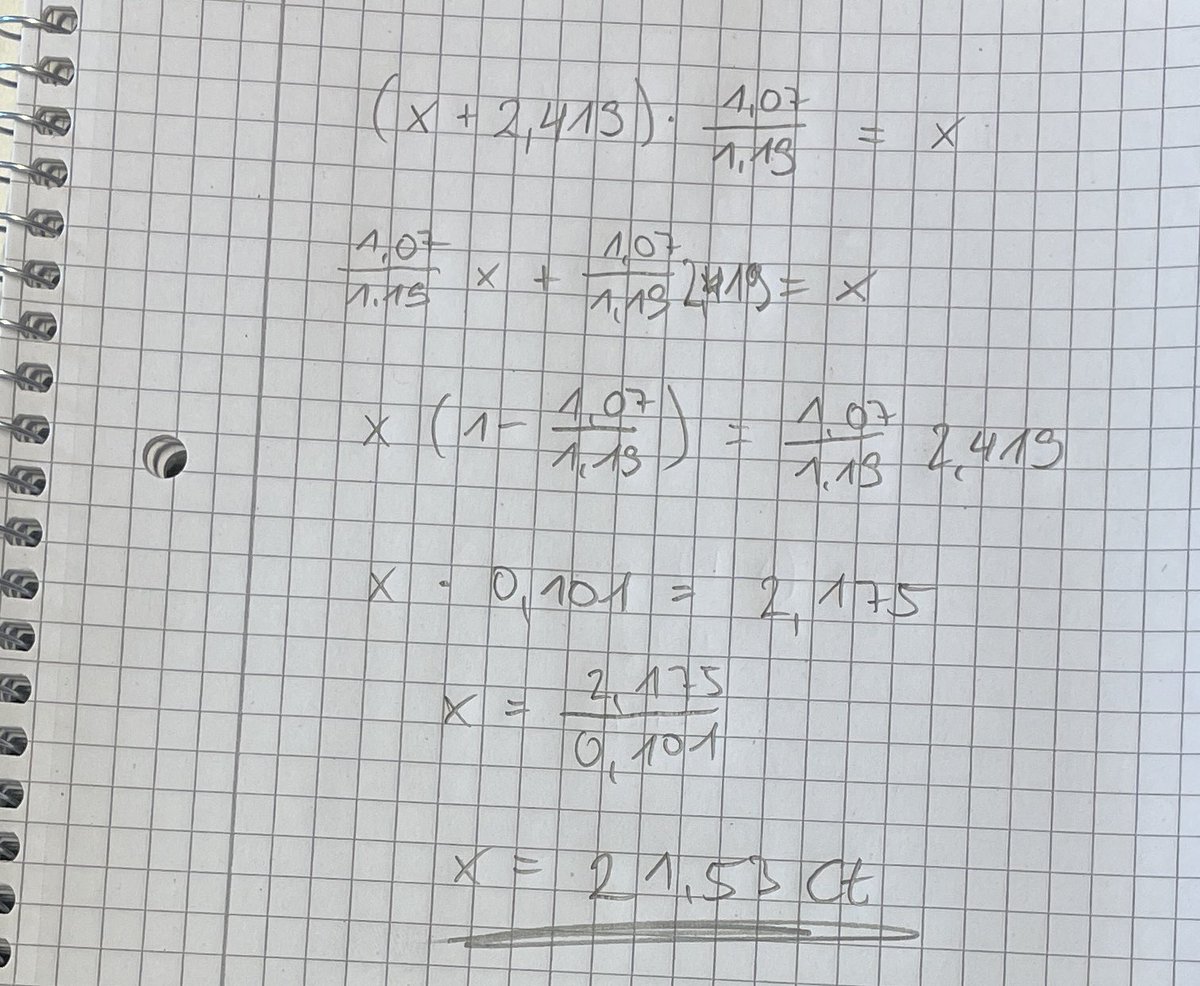 (x + 2,419) · 1,07/1,19 = x
1,07/1,19 x + 1,07/1,19 2,419 = x
x (1 - 1,07/1,19) = 1,07/1,19 2,419
x · 0,101 = 2,175
x = 2,175/0,101
x = 21,53 Ct